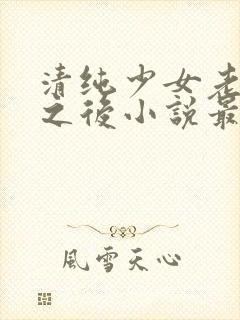 清纯少女老
之後小說最
風雪天心